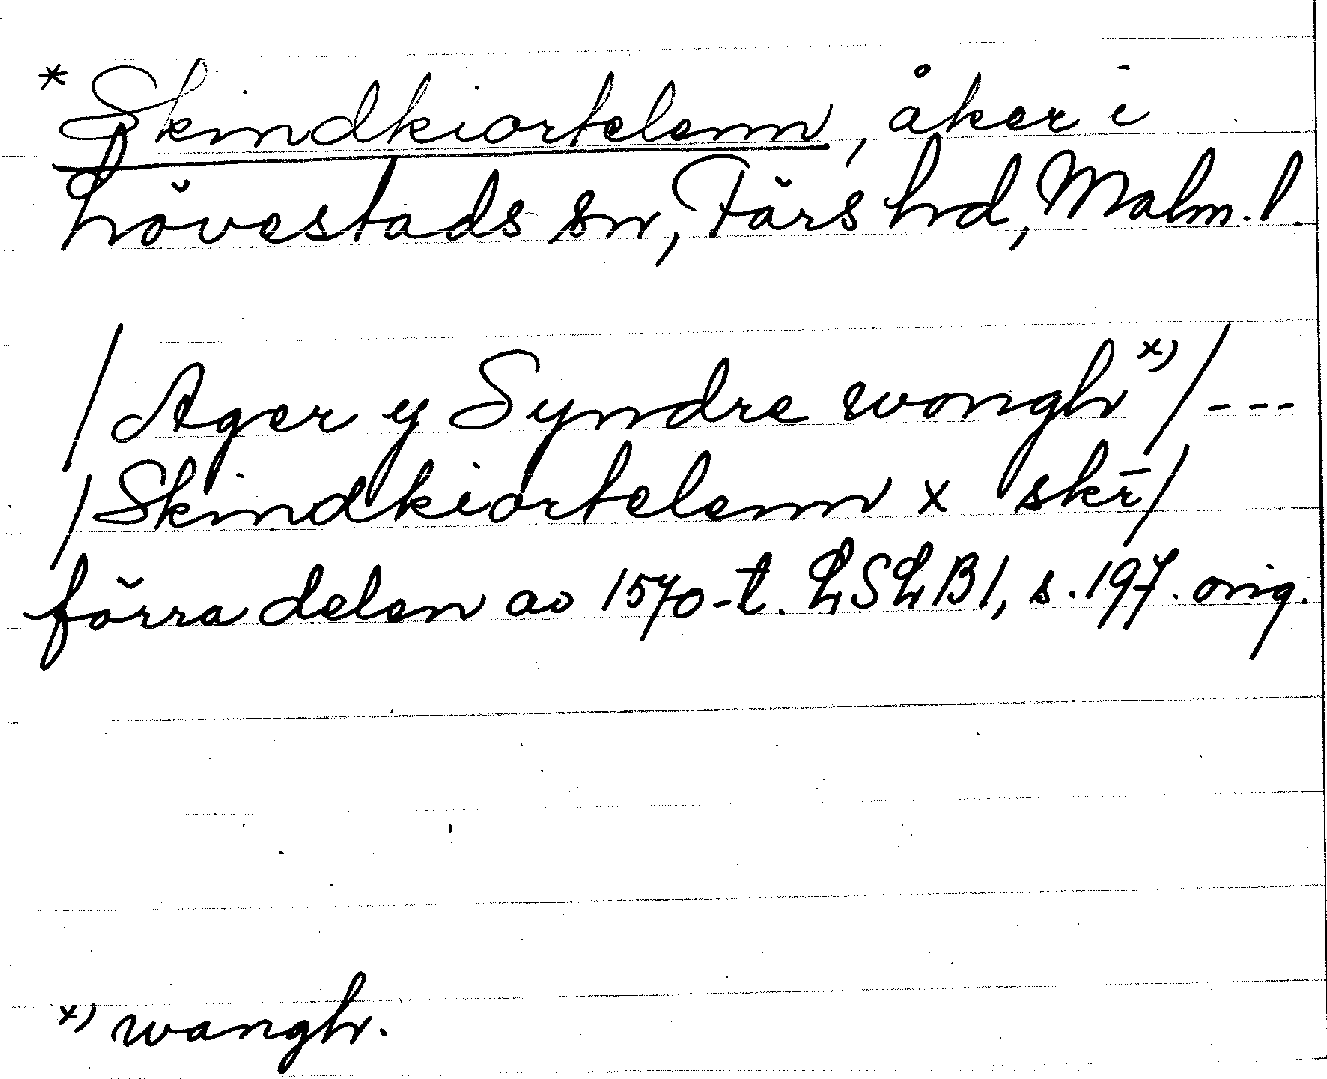 * Skindkiortelenn, åker i
Lövestads sn, Färs hd, Malm. l.
/Ager y Syndre wongh x)/---
/Skindkiortelenn x skr̄/
förra delen av 1570-t. LSLB1, s. 197. orig.
x) wangh.